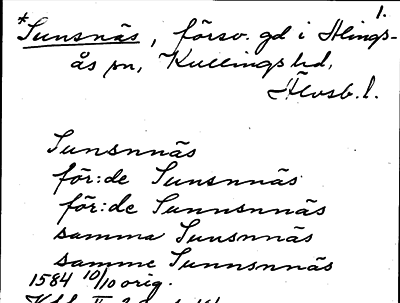 1.
*Sunsnäs, försv. gd i Alings-
ås sn, Kullings hd,
Älvsb. l.
Sunsnnäs
för:de Sunsnnäs
för:de Sunnsnnäs
samma Sunsnnäs
samme Sunnsnnäs
1584 10/10 orig.